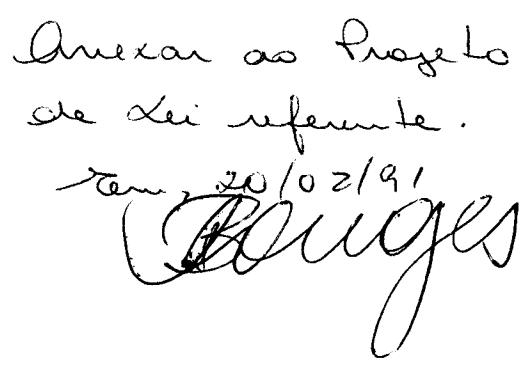 Anexar ao Projeto
de Lei referente.
Em, 20/02/91
Borges